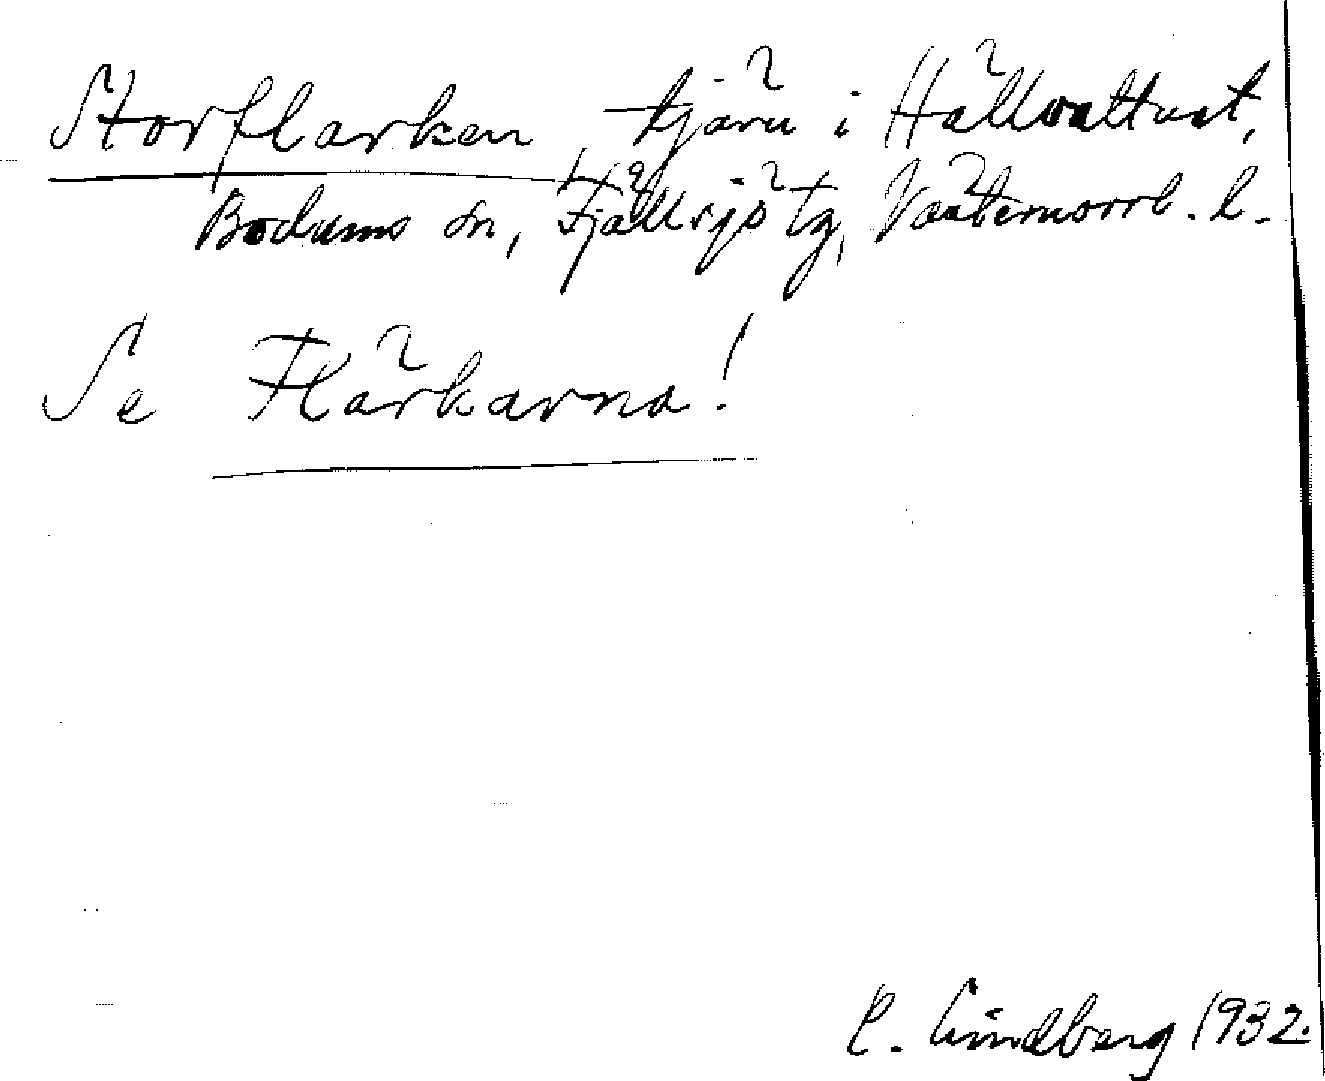 Storflarken, tjärn i Hällvattnet,
Bodums sn, Fjällsjö tg, Västernorrl. l.
Se Flärkarna!
C. Lindberg 1932.